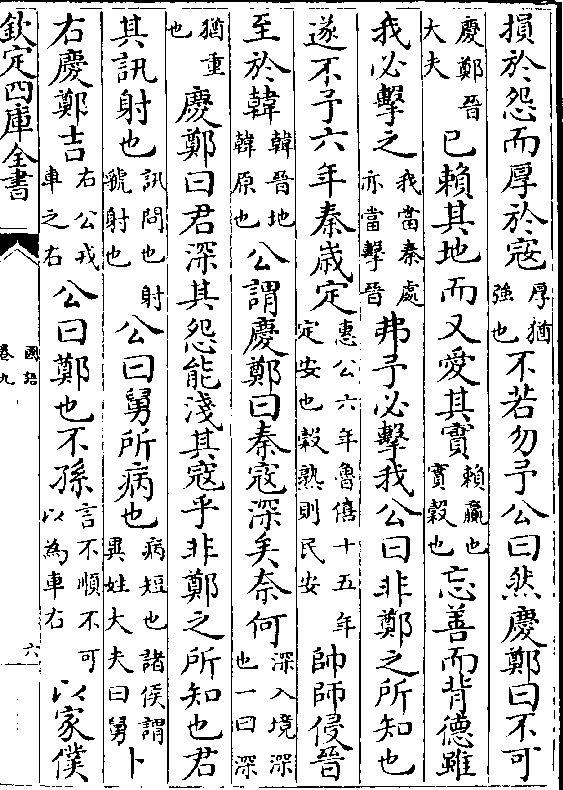 損於怨而厚於寇厚猶強也不若勿予公曰然慶鄭曰不可
慶鄭晉大夫已賴其地而又愛其實賴贏也實穀也忘善而背德雖
我必擊之我當秦處亦當擊晉弗予必擊我公曰非鄭之所知也
遂不予六年秦歲定惠公六年魯僖十五年定安也穀熟則民安帥師侵晉
至於韓韓晉地韓原也公謂慶鄭曰秦寇深矣奈何深入境深也一曰深
猶重也慶鄭曰君深其怨能淺其寇乎非鄭之所知也君
其訊射也訊問也射虢射也公曰舅所病也病短也諸侯謂異姓大夫曰舅卜
右慶鄭吉右公戎車之右公曰鄭也不孫言不順不可以為車右以家僕
欽定四庫全書
國語
卷九
六